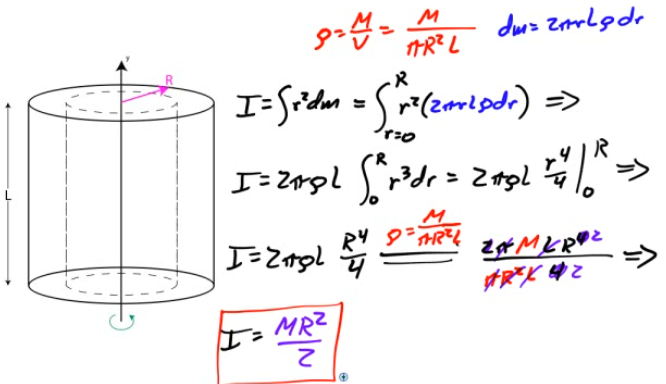 ρ = M/V = M/(πR²L)   dm = 2πrLρdr
y
R
I = ∫r²dm = ∫_{r=0}^{R} r²(2πrLρdr) =>
L
I = 2πρL ∫_0^R r³dr = 2πρL r⁴/4 |_0^R =>
I = 2πρL R⁴/4 = (ρ = M/(πR²L)) 2πMLR⁴²/(πR²L 4 2) =>
I = MR²/2